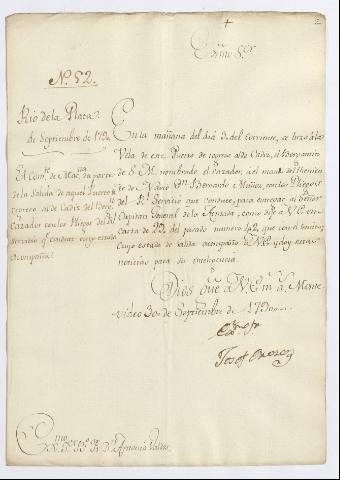 2
Exmo. Sor.
No. 52.
Rio de la Plata
de Septiembre de 1790
El Comte. de Mara. da parte
de la Salida de aquel Puerto
regreso al de Cadiz del Bergn.
Cazador con los Pliegos del Rl.
Servicio qe. conduce cuyo estado
acompaña.
En la mañana del dia 3 del corriente, se hizo à la
Vela de este Puerto de regreso al de Cadiz, el Bergantin
de S. M. nombrado el Cazador, a el mando del Theniente
de Navio Dn. Bernardo Muñoz, con los Pliegos
del Rl. Servicio que conduce, para entregar al Señor
Capitan General de la Armada, como dije a V.E. en
carta de 22 del pasado numero 42, que con el
Cuyo estado de salida acompaño à V.E. y doy estas
noticias para su inteligencia.
Dios gue. à V.E. ms. as. Monte-
video 30 de Septiembre de 1790
Exmo. Sor.
Josef Orozco
Exmo. Sor. Bo. Fr. Dn. Antonio Valdes.